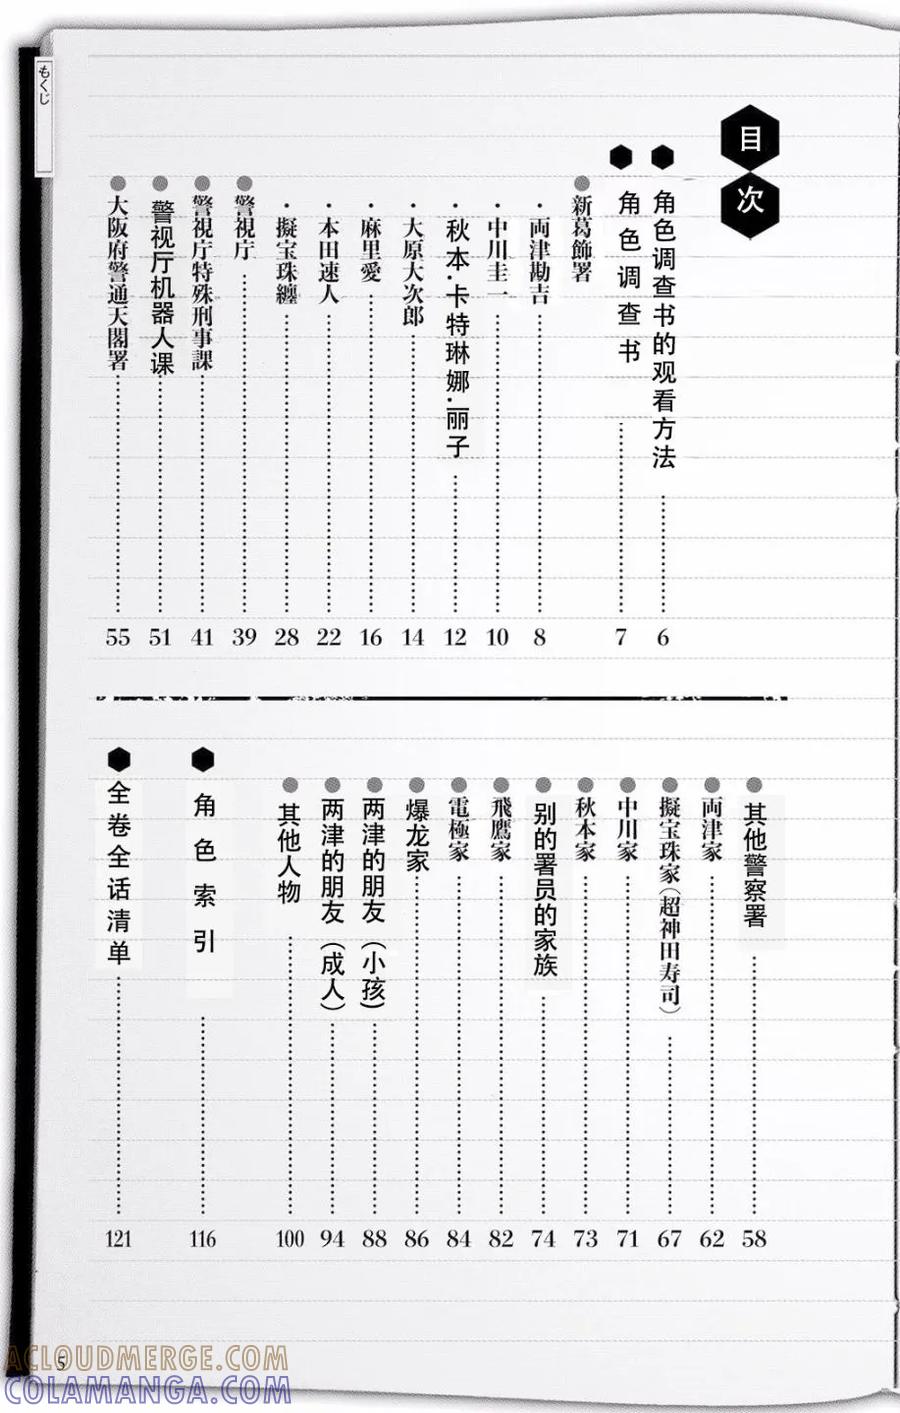 もくじ
目次
角色调查书的观看方法 6
角色调查书 7
新葛飾署
・両津勘吉 8
・中川圭一 10
・秋本·卡特琳娜·丽子 12
・大原大次郎 14
・麻里愛 16
・本田速人 22
・擬宝珠纏 28
警視庁 39
警視庁特殊刑事課 41
警视厅机器人课 51
大阪府警通天閣署 55
其他警察署 58
両津家 62
擬宝珠家（超神田寿司） 67
中川家 71
秋本家 73
别的署员的家族 74
飛鷹家 82
電極家 84
爆龙家 86
两津的朋友（小孩） 88
两津的朋友（成人） 94
其他人物 100
角色索引 116
全卷全话清单 121
5
ACLOUDMERGE.COM
COLAMANGA.COM